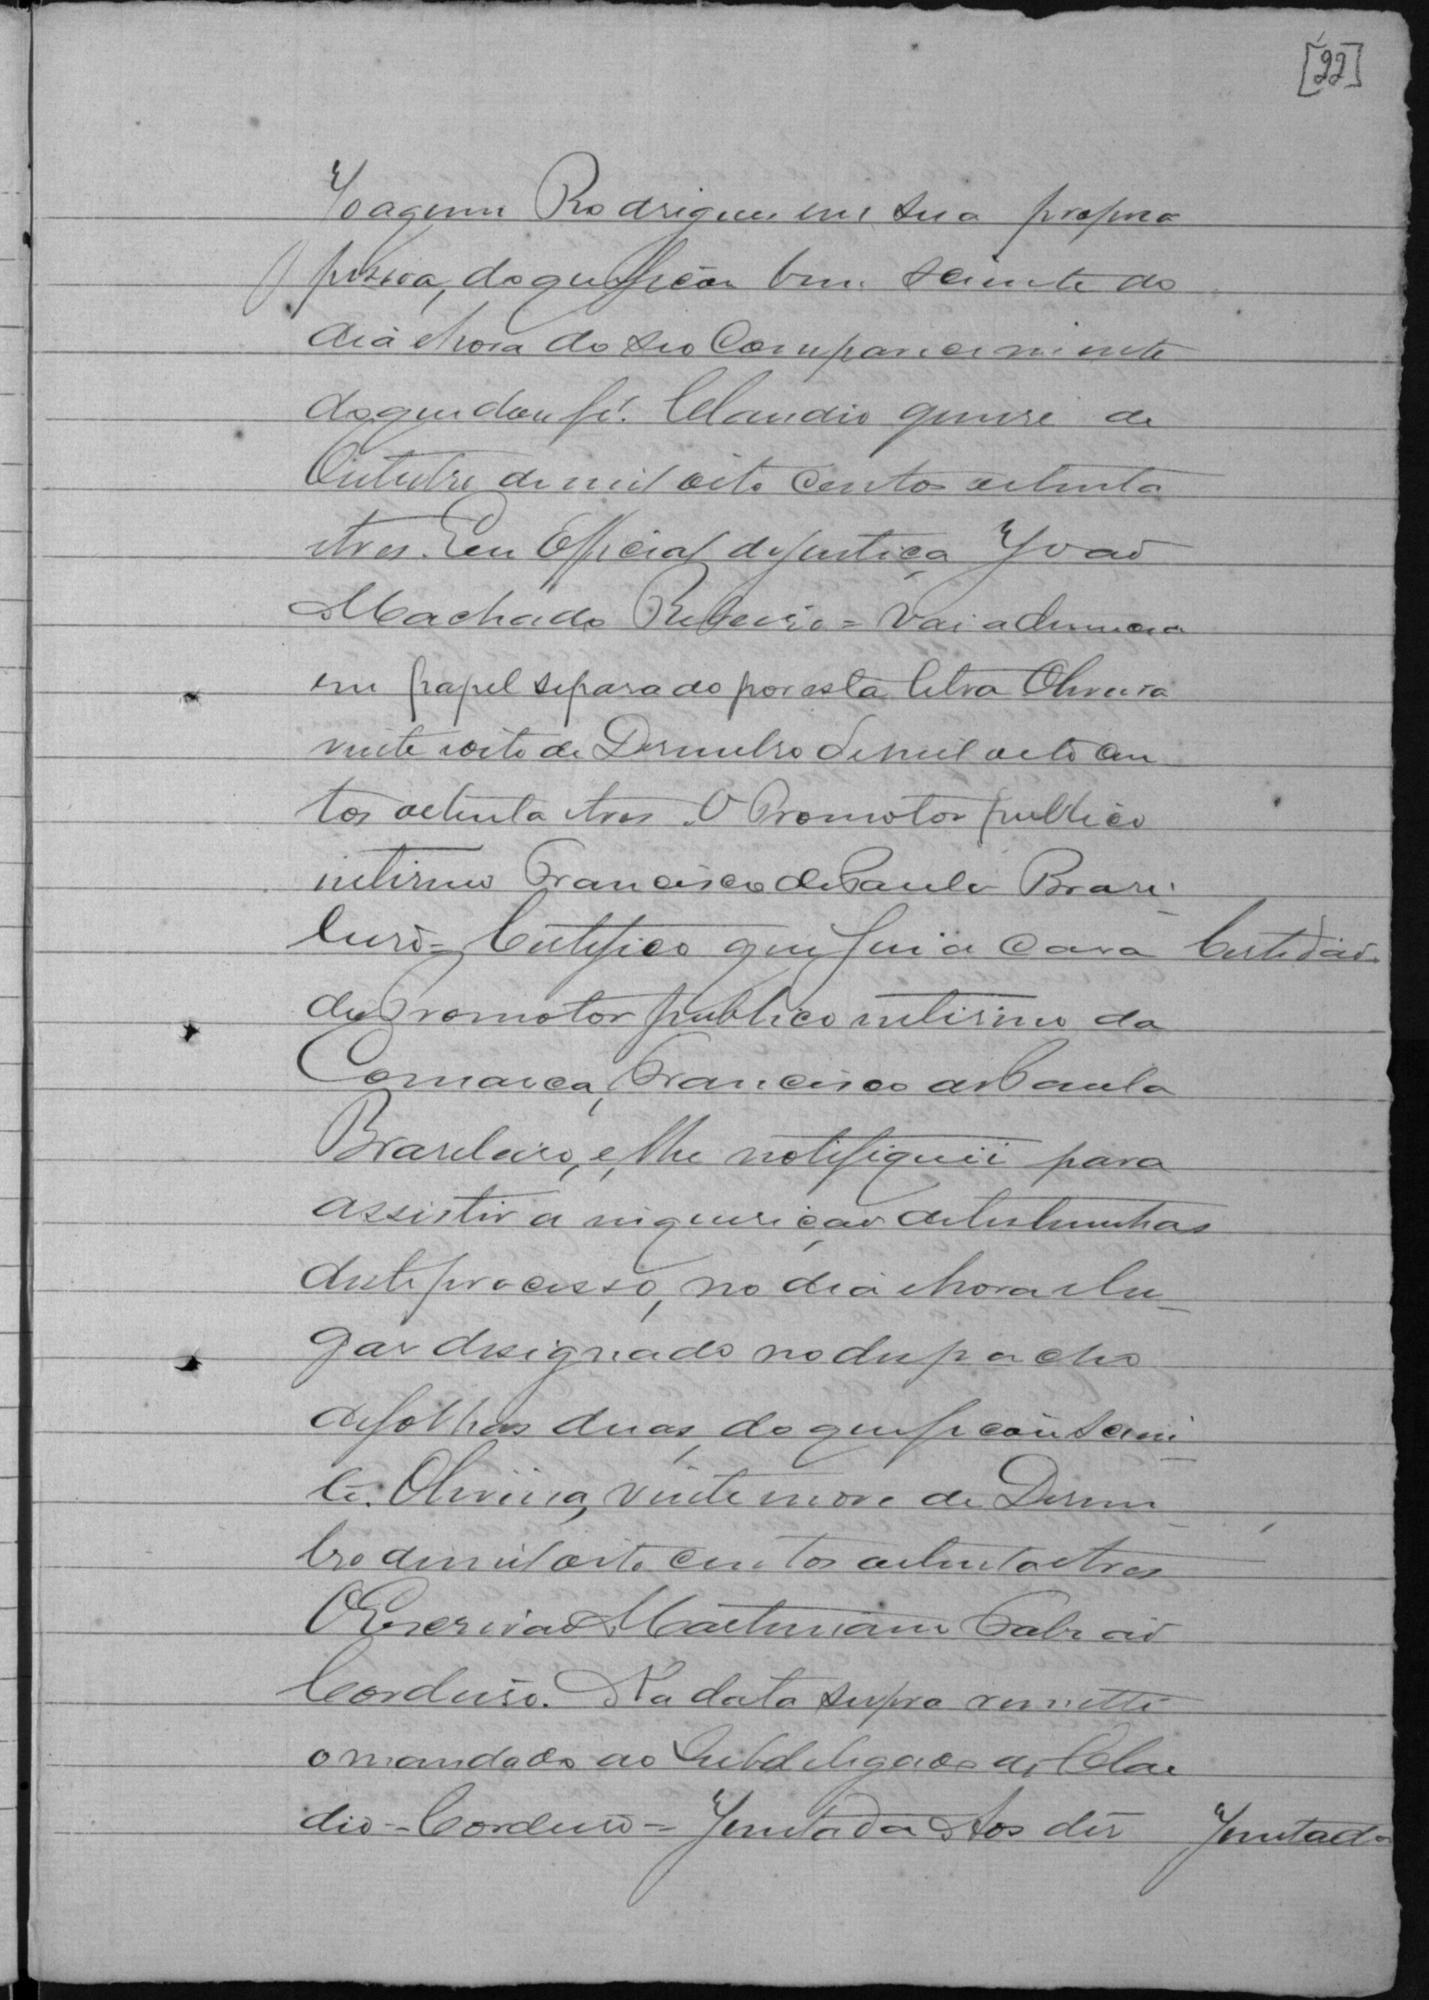 [22]
Joaquim Rodrigues em sua propria
pessoa, do que ficou bem sciente do
dia e hora do seo comparecimento
do que dou fé. Claudio quinse de
Outubro de mil oito centos oitenta
e tres. Eu Official de justiça João
Machado Ribeiro = Vai a denuncia
em papel separado por esta letra Oliveira
vinte e oito de Desembro de mil oito cen
tos oitenta e tres. O Promotor publico
interino Francisco de Paula Brasi-
leiro = Certifico que fui a casa Certidão
do Promotor publico interino da
Comarca, Francisco de Paula
Brasileiro, e lhe notifiquei para
assistir a inquirição de testemunhas
deste processo, no dia e hora e lu-
gar designado no despacho
de folhas duas, do que ficou scien-
te. Oliveira, vinte nove de Desem-
bro de mil oito centos oitenta e tres
O Escrivão Galvão
Cordeiro. Na data supra remetti
o mandado ao Subdelegado de Clau
dio = Cordeiro = Juntada Aos dez Juntada